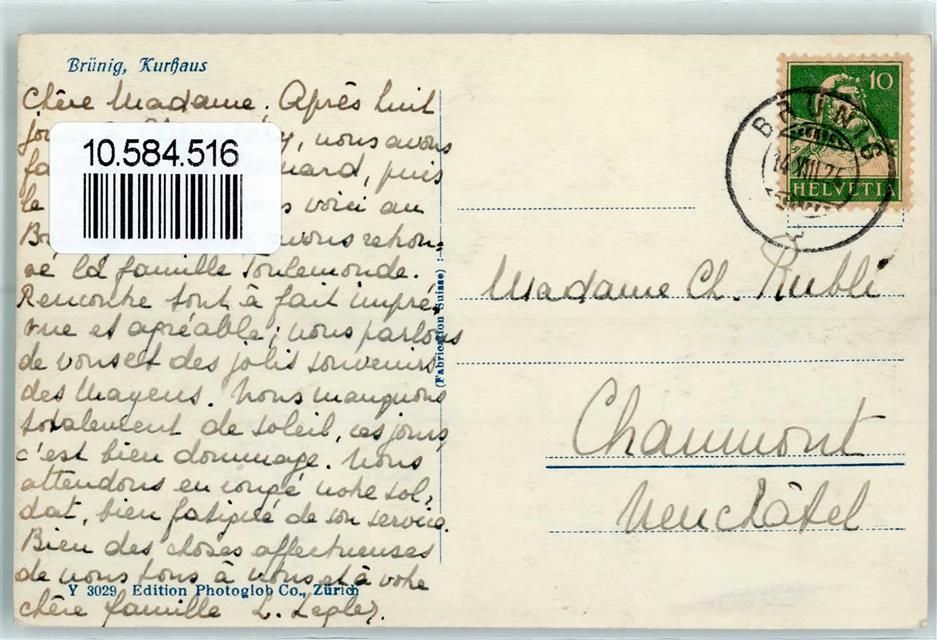 Brünig, Kurhaus
Chère Madame. Après huit
nous avons
puis
le voici au
avons retrou-
vé la famille Toulemonde.
Rencontre tout à fait impré-
vue et agréable; nous parlons
de vous et des jolis souvenirs
des Mayens. Nous manquons
totalement de soleil, ces jours,
c'est bien dommage. Nous
attendons en congé notre sol-
dat, bien fatigué de son service.
Bien des choses affectueuses
de nous tous à vous et à votre
chère famille L. Legler.
Y 3029 Edition Photoglob Co., Zürich
10.584.516
(Fabrication Suisse)
10
HELVETIA
BRÜNIG
14 VIII
Madame Ch. Rublé
Chaumont
Neuchâtel